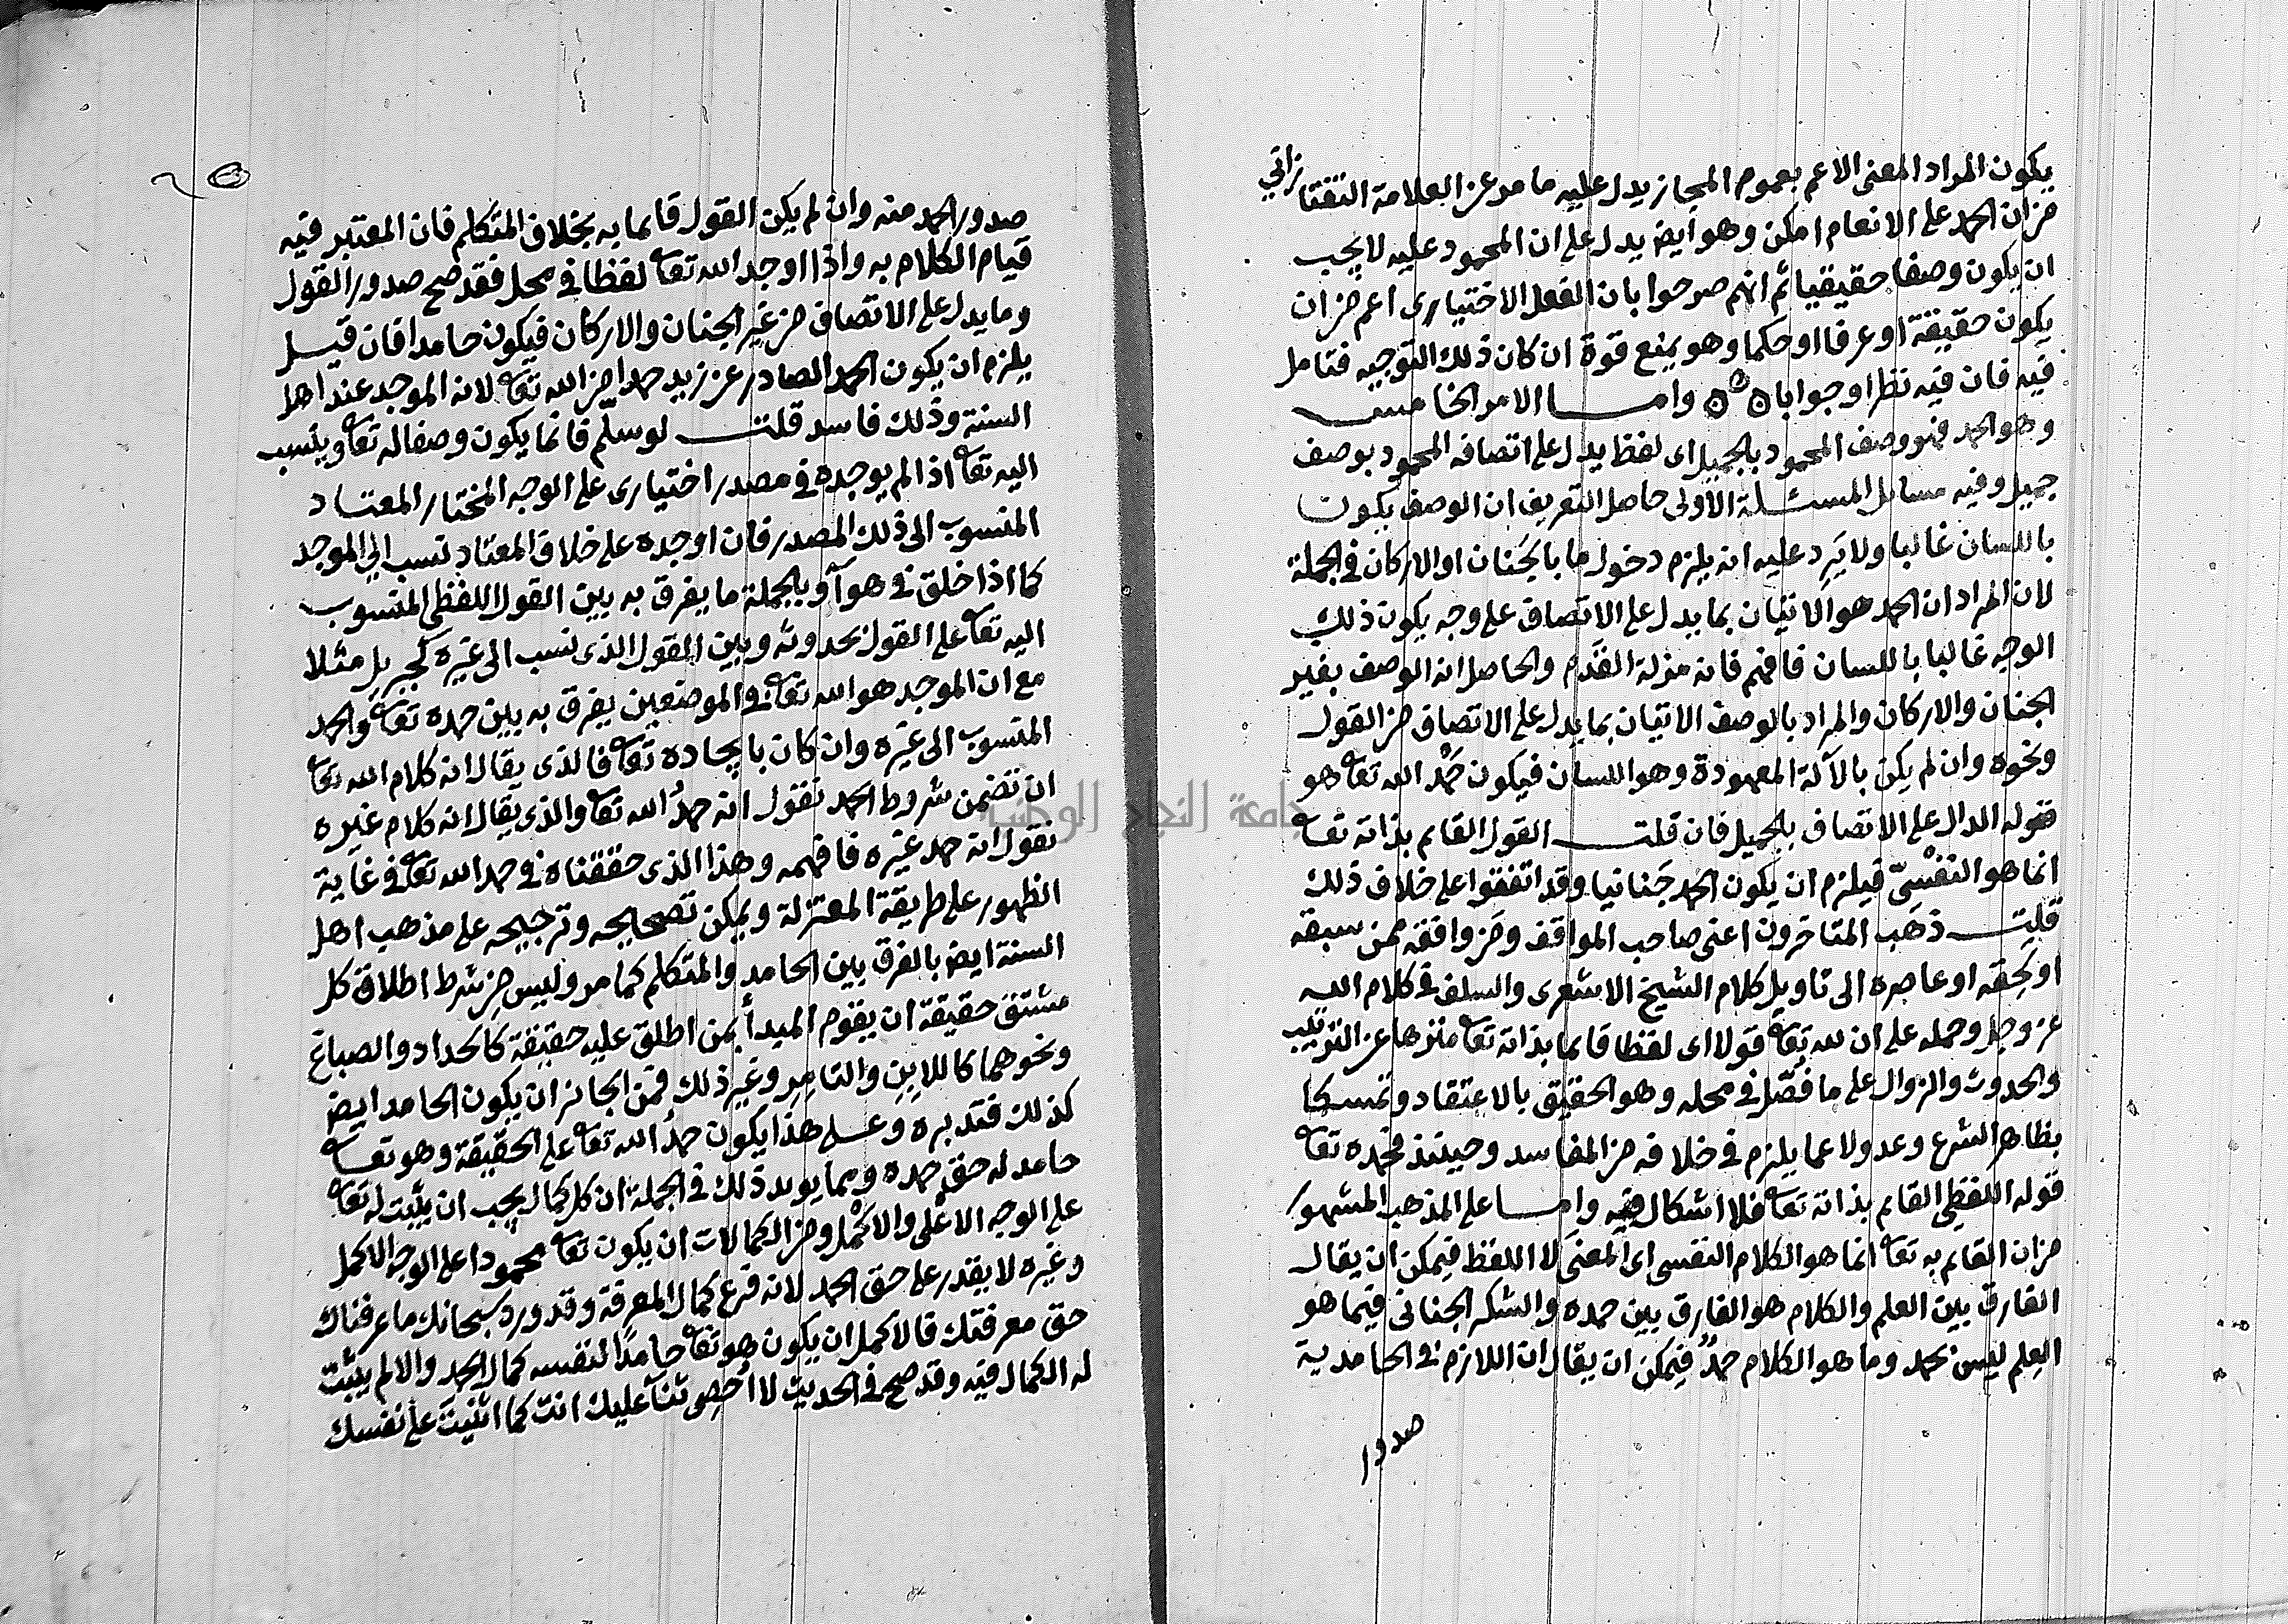 يكون المراد المعنى الاعم بعموم المجاز يدل عليه ما مر عن العلامة التفتازاني
من ان الحمد على الانعام امكن وهو ايض يدل على ان المحمود عليه لا يجب
ان يكون وصفا حقيقيا ثم انهم صرحوا بان الفعل الاختيارى اعم من ان
يكون حقيقة او عرفا او حكما وهو يمنع قوة ان كان ذلك التوجيه فتامل
فيه فان فيه نظرا وجوابا واما الامر الخامس
وهو الحمد فهو وصف المحمود بالجميل اى لفظ يدل على اتصافه المحمود بوصف
جميل وفيه مسايل المسئلة الاولى حاصل التعريف ان الوصف يكون
باللسان غالبا ولا يَرِد عليه انه يلزم دخول ما بالجَنان او الاركان فى الجملة
لان المراد ان الحمد هو الاتيان بما يدل على الاتصاف على وجه يكون ذلك
الوجه غالبا باللسان فافهم فانه مزلة القَدَم والحاصل انه الوصف بغير
الجنان والاركان والمراد بالوصف الاتيان بما يدل على الاتصاف من القول
ونحوه وان لم يكن بالآلة المعهودة وهو اللسان فيكون حَمْدُ الله تعا هو
قوله الدال على الاتصاف بالجميل فان قلت القول القايم بذاته تعا
انما هو النفْسِىّ فيلزم ان يكون الحمد جَنانيا وقد اتفقوا على خلاف ذلك
قلت ذهب المتاخرون اعنى صاحب المواقف ومَن وافقه ممن سبقه
او لحِقه او عاصره الى تاويل كلام الشيخ الاشعرى والسلف فى كلام الله
عز وجل وحمله على ان لله تعا قولا اى لفظا قايما بذاته تعا منزها عن الترتيب
والحدوث والزوال على ما فُصّل فى محله وهو الحقيق بالاعتقاد وتمسكا
بظاهر الشرع وعدولا عما يلزم فى خلافه من المفاسد وحينئذ فحمده تعا
قوله اللفظى القايم بذاته تعا فلا اشكال فيه واما على المذهب المشهور
من ان القايم به تعا انما هو الكلام النفسى اى المعنى لا اللفظ فيمكن ان يقال
الفارق بين العلم والكلام هو الفارق بين حمده والشكر الجنانى فيما هو
العِلم ليس بحمد وما هو الكلام حمدٌ فيمكن ان يقال ان اللازم فى الحامدية
صدور
صدور الحمد منه وان لم يكن القول قايما به بخلاف المتكلم فان المعتبر فيه
قيام الكلام به واذا اوجد الله تعا لفظا فى محل فقد صح صدور القول
وما يدل على الاتصاف من غير الجنان والاركان فيكون حامدا فان قيل
يلزم ان يكون الحمد الصادر عن زيد حمدا من الله تعا لانه الموجد عند اهل
السنة وذلك فاسد قلت لو سلّم فانما يكون وصفا له تعا وينسب
اليه تعا اذا لم يوجده فى مصدر اختيارى على الوجه المختار المعتاد
المنسوب الى ذلك المصدر فان اوجده على خلاف المعتاد نسب الى الموجد
كما اذا خلق فى هوآ وبالجملة ما يفرق به بين القول اللفظى المنسوب
اليه تعا على القول بحدوثه وبين القول الذى نسب الى غيره كجبريل مثلا
مع ان الموجد هو الله تعا فى الموضعين يفرق به بين حمده تعا والحمد
المنسوب الى غيره وان كان بايجاده تعا فالذى يقال انه كلام الله تعا
ان تضمن شروط الحمد نقول انه حمدُ الله تعا والذى يقال انه كلام غيره
نقول انه حمد غيره فافهمه وهذا الذى حققناه فى حمد الله تعا فى غاية
الظهور على طريقة المعتزلة ويمكن تصحيحه وترجيحه على مذهب اهل
السنة ايض بالفرق بين الحامد والمتكلم كما مر وليس من شرط اطلاق كل
مشتق حقيقة ان يقوم المبدأ بمن اطلق عليه حقيقة كالحداد والصباغ
ونحوهما كاللابِنِ والتامِرِ وغير ذلك فمن الجائز ان يكون الحامد ايض
كذلك فتدبره وعلى هذا يكون حمدُ الله تعا على الحقيقة وهو تعا
حامد له حق حمده ومما يويد ذلك فى الجملة ان كل كمال يجب ان يثبت له تعا
على الوجه الاعلى والاكمل ومن الكمالات ان يكون تعا محمودا على الوجه الاكمل
وغيره لا يقدر على حق الحمد لانه فرع كمال المعرفة وقد ورد سبحانك ما عرفناك
حق معرفتك فالاكمل ان يكون هو تعا حامدًا لنفسه كمال الحمد والا لم يثبت
له الكمال فيه وقد صح فى الحديث لا اُحصِى ثنآ عليك انت كما اثنيتَ على نفسك
جامعة النجاح الوطنية